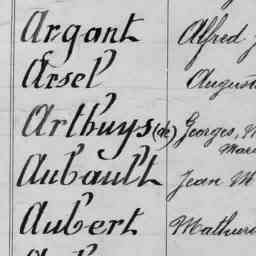 Argant Alfred
Arsel August
Arthuys (de) Georges,
Aubault Jean M
Aubert Mathuri